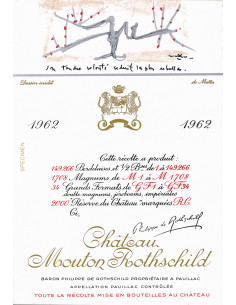 Dessin inédit de Matta
1962 1962
SPECIMEN
Cette récolte a produit:
149.266 Bordelaises et ½ Bses de 1 à 149.266
1708 Magnums de M 1 à M 1708
34 Grands Formats de GF1 à GF34
double magnums, jéroboams, impériales
2000 "Réserve du Château" marquées R.C.
Ci,
Philippe de Rothschild
Château
Mouton Rothschild
BARON PHILIPPE DE ROTHSCHILD PROPRIÉTAIRE A PAUILLAC
APPELLATION PAUILLAC CONTRÔLÉE
TOUTE LA RÉCOLTE MISE EN BOUTEILLES AU CHÂTEAU